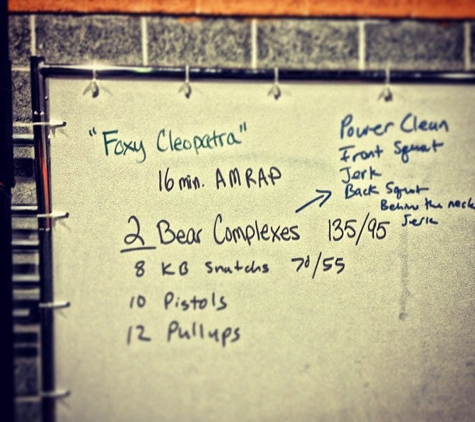 "Foxy Cleopatra"
16 min. AMRAP
2 Bear Complexes 135/95
8 KB Snatchs 70/55
10 Pistols
12 Pullups
Power Clean
Front Squat
Jerk
Back Squat
Behind the neck
Jerk